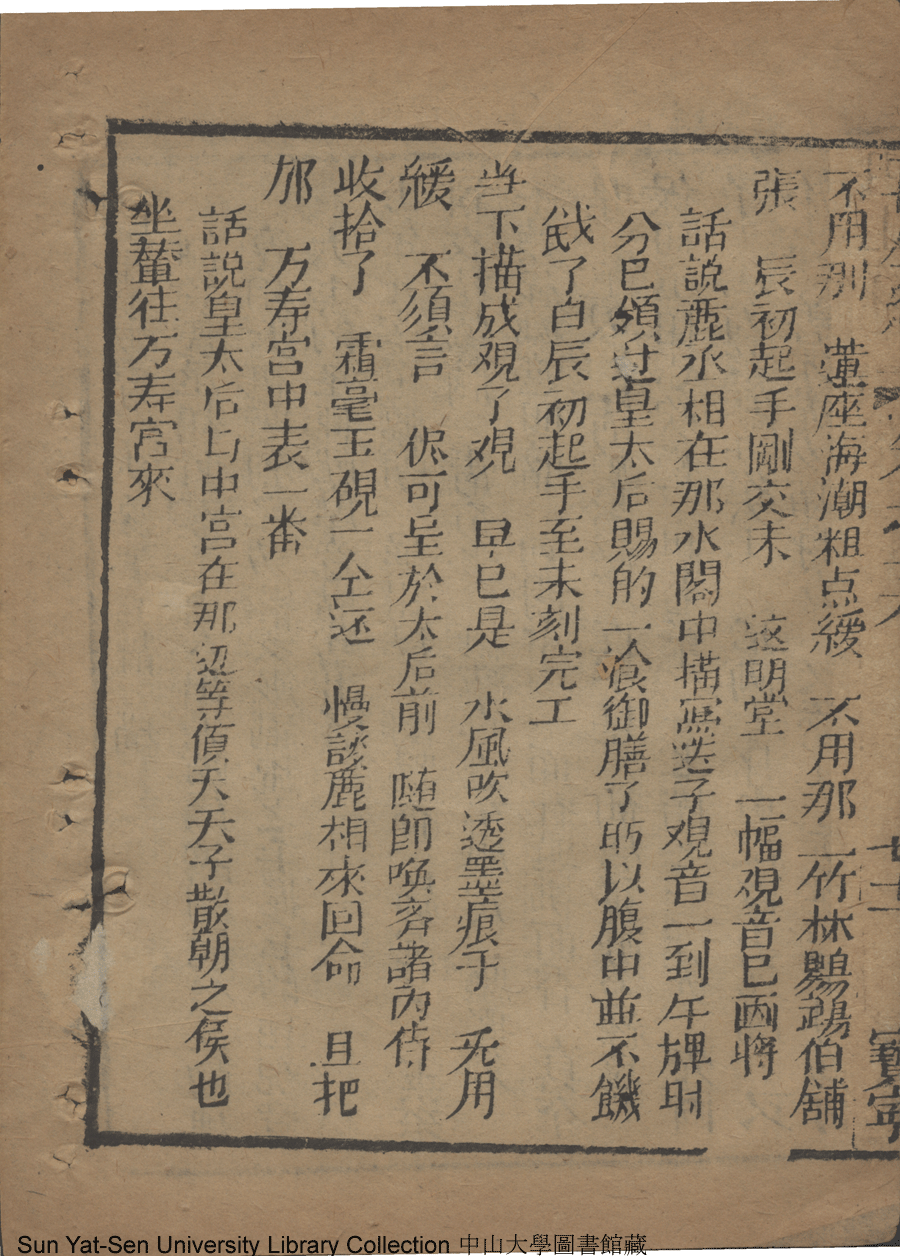 不用別　蓮座海潮粗点缓　不用那一竹林鸚鵡伯舖
張　辰初起手剛交未　这明堂　一幅观音已画將
話説鹿丞相在那水閣中描寫送子观音一到午牌时
分已頒过皇太后賜的一飡御膳了所以腹中並不饑
餓了自辰初起手至未刻完工
当下描成观了观　早已是　水凬吹透墨痕干　无用
緩　不須言　你可呈於太后前　随即喚齐諸内侍
收拾了　霜毫玉硯一仝还　慢談鹿相來回命　且把
那　万寿宫中表一番
話說皇太后与中宫在那边等候天子散朝之侯也
坐輦往万寿宫來
寶寧
Sun Yat-Sen University Library Collection 中山大學圖書館藏